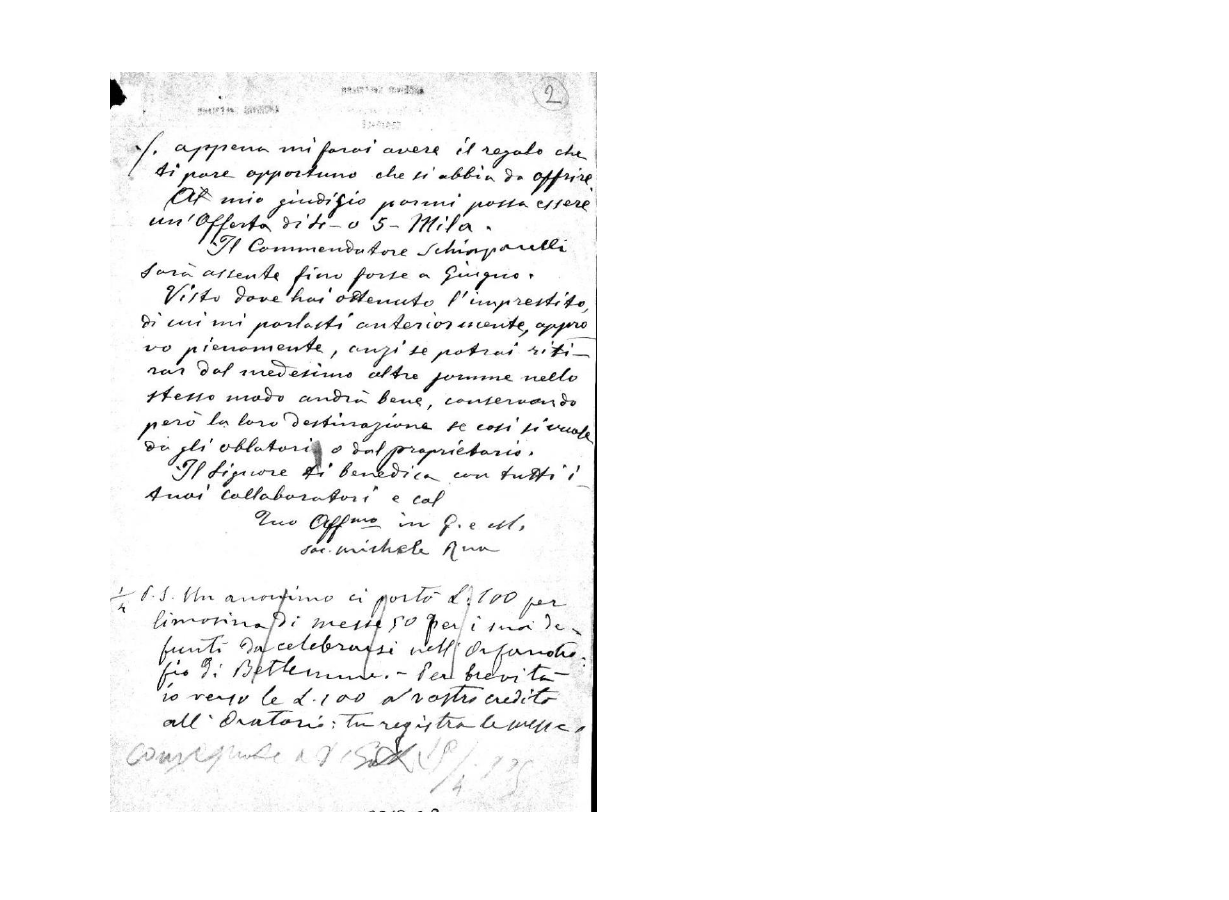 2
./. appena mi farai avere il regalo che
ti pare opportuno che si abbia da offrire.
Al mio giudizio parmi possa essere
un'Offerta di o 5 - Mila.
Il Commendatore Schiapparelli
sarà assente fino forse a Giugno.
Visto dove hai ottenuto l'imprestito,
di cui mi parlasti anteriormente, appro
vo pienamente, anzi se potrai riti-
rar dal medesimo altre somme nello
stesso modo andrà bene, conservando
però la loro destinazione se così si vuole
da gli oblatori o dal proprietario.
Il Signore ti benedica con tutti i
tuoi collaboratori e col
Tuo Affmo in G. e M.
Sac. Michele Rua
1/4 P.S. Un anonimo ci portò L. 100 per
limosina di messe 50 per i suoi de-
funti da celebrarsi nell' Orfanotro-
fio di Betlemme. - Per brevità
io verso le L. 100 a vostro credito
all' Oratorio: tu registra le messe.